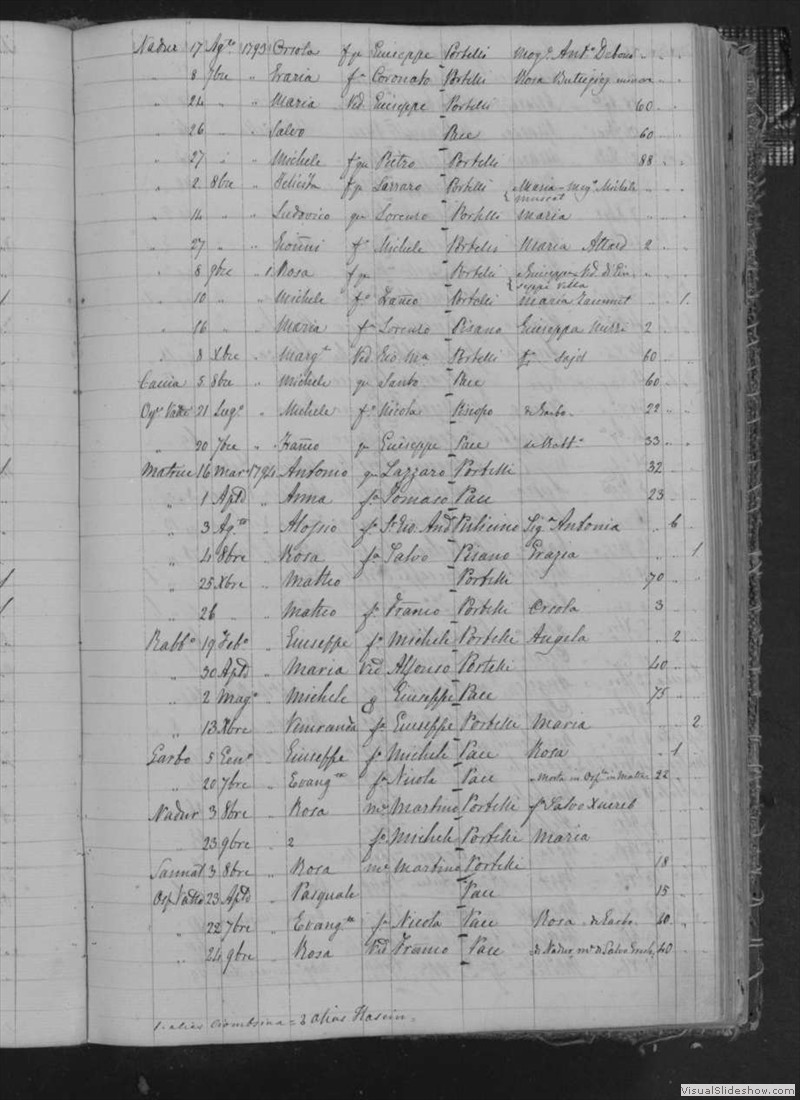 Nadur 17 Ag.to 1793 Orsola f qu Giuseppe Portelli Mog.e Ant.o Debono
" 8 7bre " Grazia f.a Coronato Portelli Rosa Buttigieg minore
" 24 " " Maria Ved Giuseppe Portelli 60
" 26 " " Salvo Pace 60
" 27 " " Michele f qu Pietro Portelli 88
" 2 8bre " Felicita f qu Portelli Maria mog.e Michele
muscat
" 14 " Ludovico qu Lorenzo Portelli Maria
" 27 " Gio f.o Michele Portelli Maria Attard 2
" 8 9bre " 1. Rosa f qu " Portelli Giuseppa Ved. di Giu
seppe Vella
" 10 " " Michele f.o Portelli Maria 1.
" 16 " " Maria f.a Lorenzo Pisano Giuseppa 2
" 8 Xbre " Marg.ta Ved Gio. M.a Portelli 60
5 8bre " Michele qu Santo Pace 60
21 Lug.o " Michele f.o Nicola di Garbo 22
" 20 7bre " qu Giuseppe Pace de Rabb.o 33
Matrice 16 Mar 1794 Antonio qu Lazzaro Portelli 32
" 1 Aple " Anna f.a Tomaso Pace 23
" 3 Ag.to " Aloisio f.o Gio. And Sig.a Antonia 6
" 4 8bre " Rosa f.a Salvo Pisano Grazia 1
" 25 Xbre " Matteo Portelli 70
" 26 " " Matteo f.o Franco Portelli Orsola 3
Rabb.o 19 Feb.o " Giuseppe f.o Michele Portelli Angela 2
" 30 Aple " Maria Ved Alfonso Portelli 40
" 2 Mag.o " Michele q Giuseppe Pace 75
" 13 Xbre " f.a Giuseppe Portelli Maria 2
Garbo 5 Gen.o " Giuseppe f.o Michele Pace Rosa 1
" 20 7bre " Evang.ta f.o Nicola Pace Morto in Osp.le in Matrice 22
Nadur 3 8bre " Rosa m.e Martino Portelli f.a Salvo Xuereb
" 23 9bre " 2 f.o Michele Portelli Maria
Sannat 3 8bre " Rosa m.e Martino Portelli 18
Osp Vatto 23 Aple " Pasquale Pace 15
" 22 7bre " Evang.ta f.o Nicola Pace Rosa di Garbo 60
" 24 9bre " Rosa Ved Franco Pace di Nadur m.e di Salvo 40
1. alias = 2 alias
VisualSlideshow.com